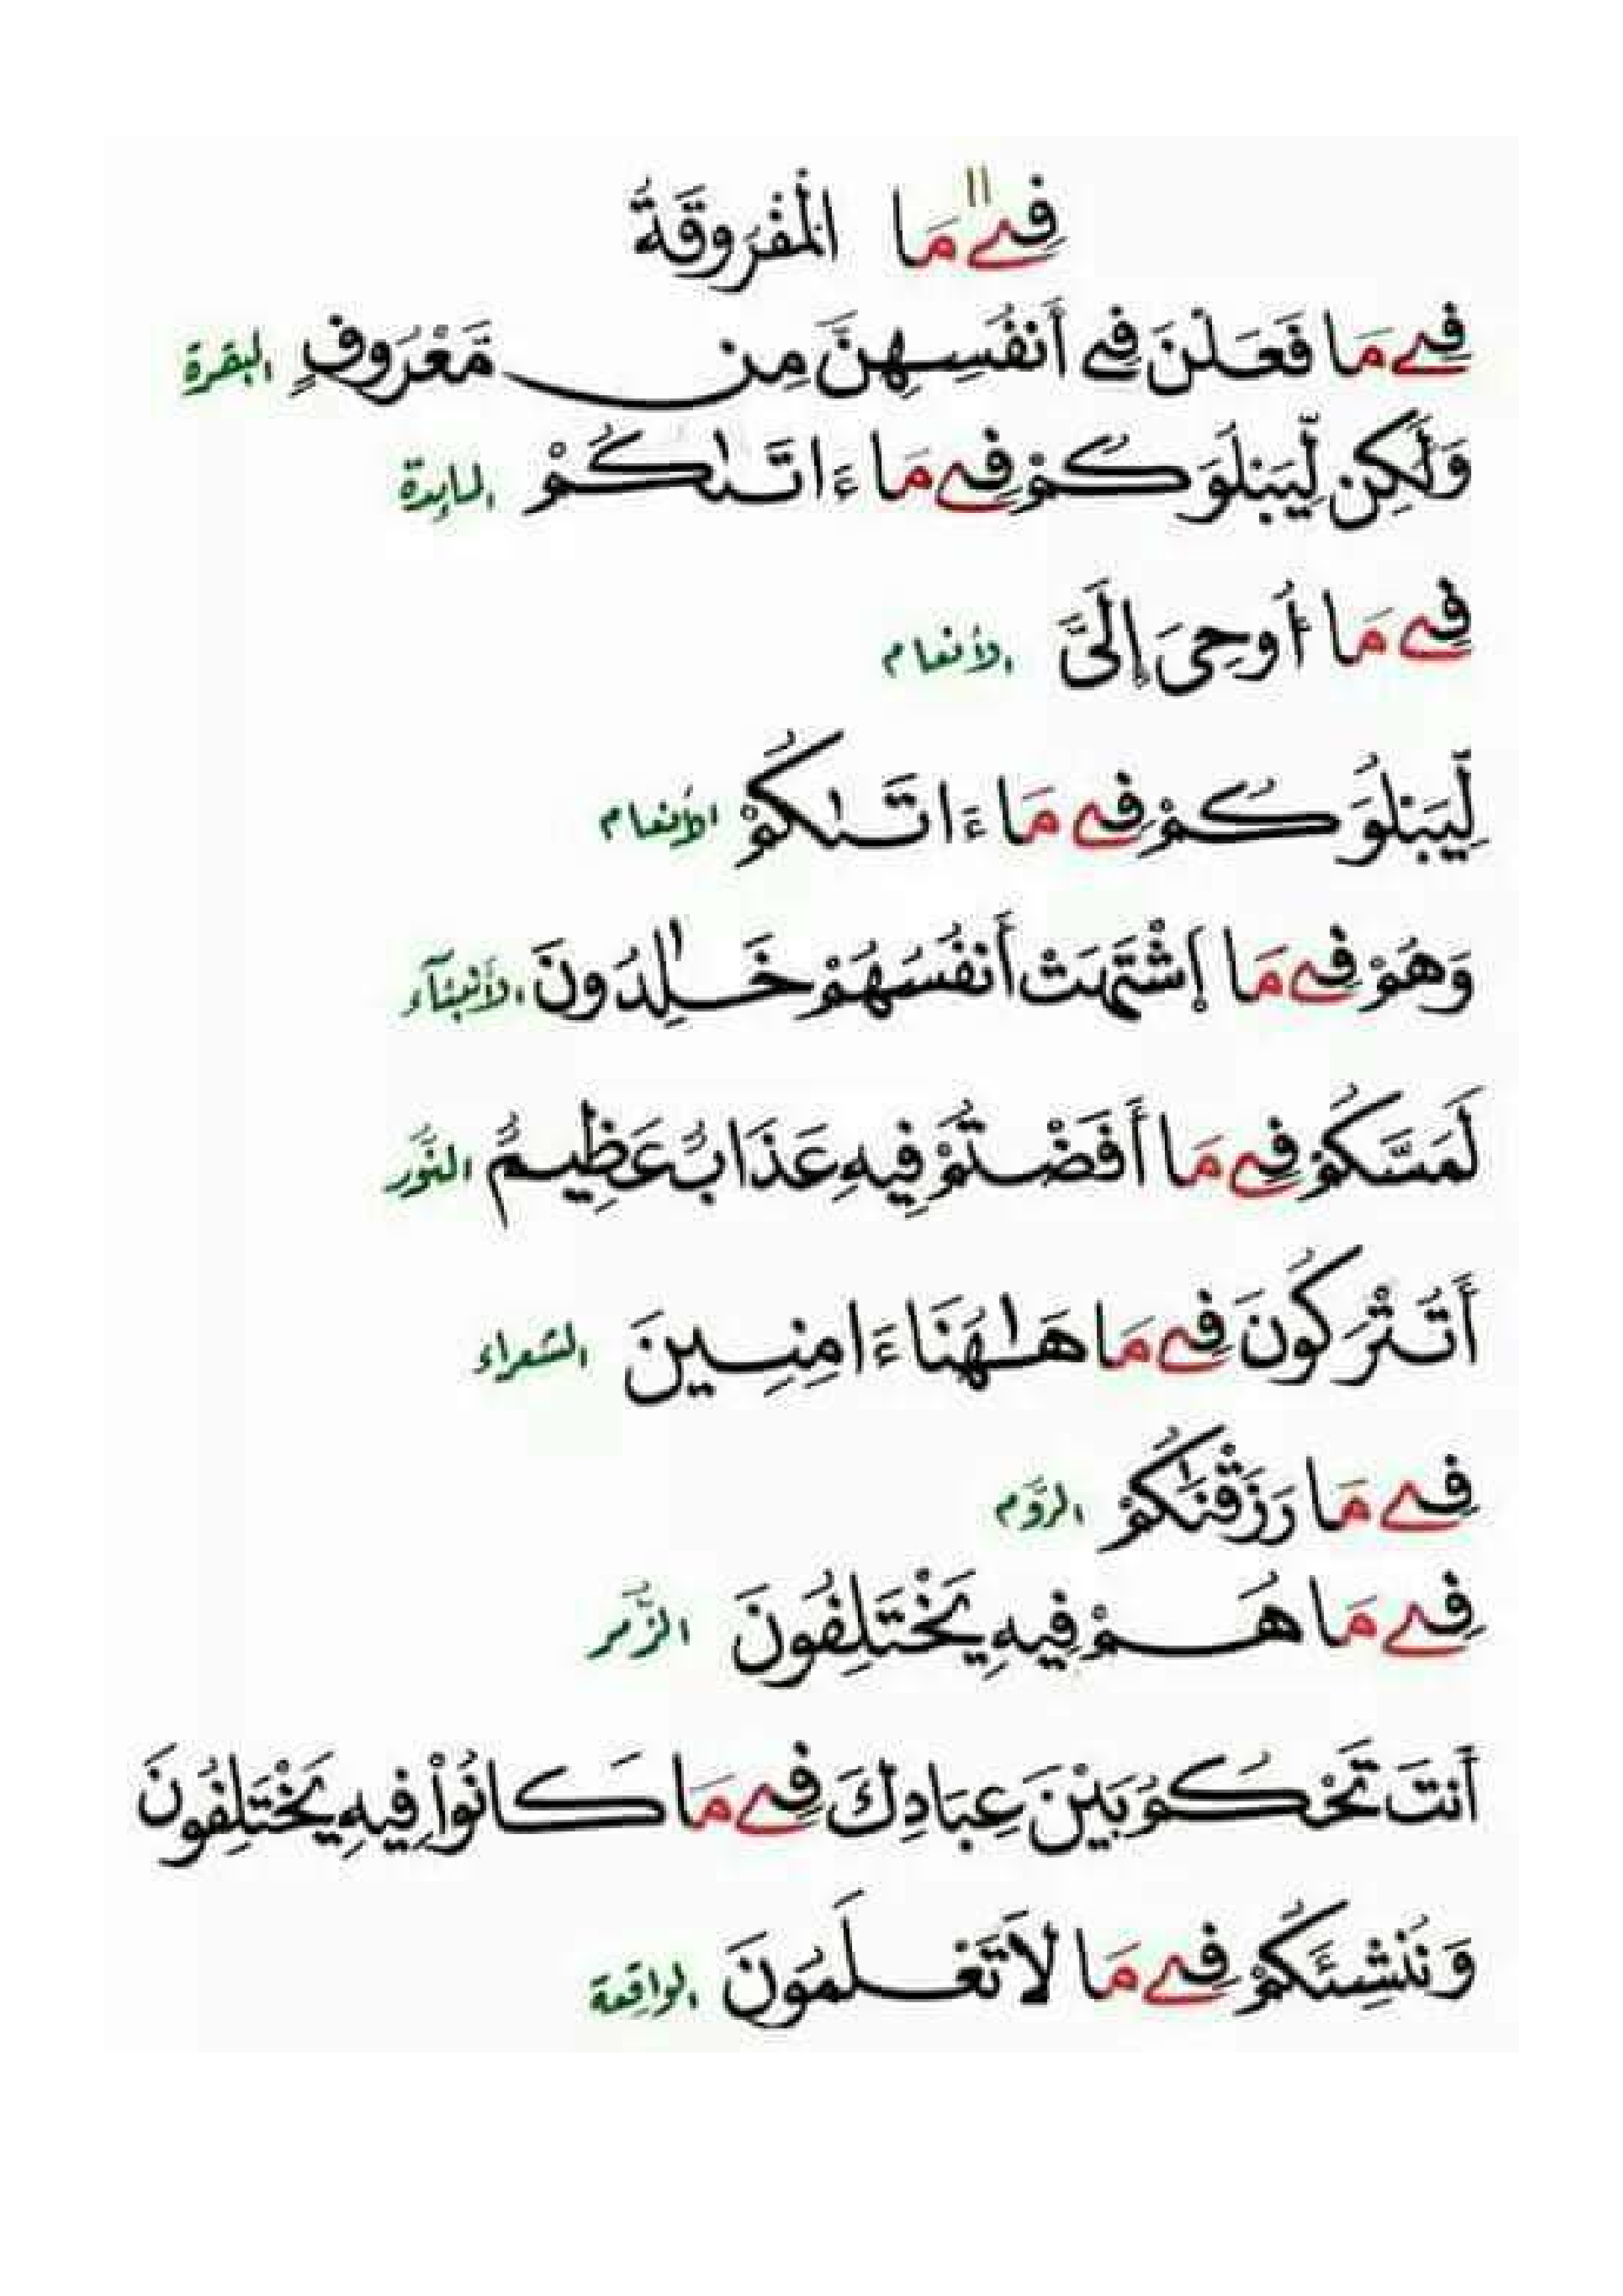 فِے مَا الْمَفْرُوقَةُ 11
فِے مَا فَعَلْنَ فِے أَنفُسِهِنَّ مِن مَّعْرُوفٍ البقرة
وَلَٰكِن لِّيَبْلُوَكُمْ فِے مَا ءَاتَىٰكُمْ المايدة
فِے مَا أُوحِىَ إِلَىَّ الأنعام
لِّيَبْلُوَكُمْ فِے مَا ءَاتَىٰكُمْ الأنعام
وَهُمْ فِے مَا إَشْتَهَتْ أَنفُسُهُمْ خَٰلِدُونَ الأنبيَآء
لَمَسَّكُمْ فِے مَا أَفَضْتُمْ فِيهِ عَذَابٌ عَظِيمٌ النُّور
أَتُتْرَكُونَ فِے مَا هَٰهُنَا ءَامِنِينَ الشعراء
فِے مَا رَزَقْنَٰكُمْ الرُّوم
فِے مَا هُمْ فِيهِ يَخْتَلِفُونَ الزُّمر
أَنتَ تَحْكُمُ بَيْنَ عِبَادِكَ فِے مَا كَانُواْ فِيهِ يَخْتَلِفُونَ
وَنُنشِئَكُمْ فِے مَا لَا تَعْلَمُونَ الواقعة